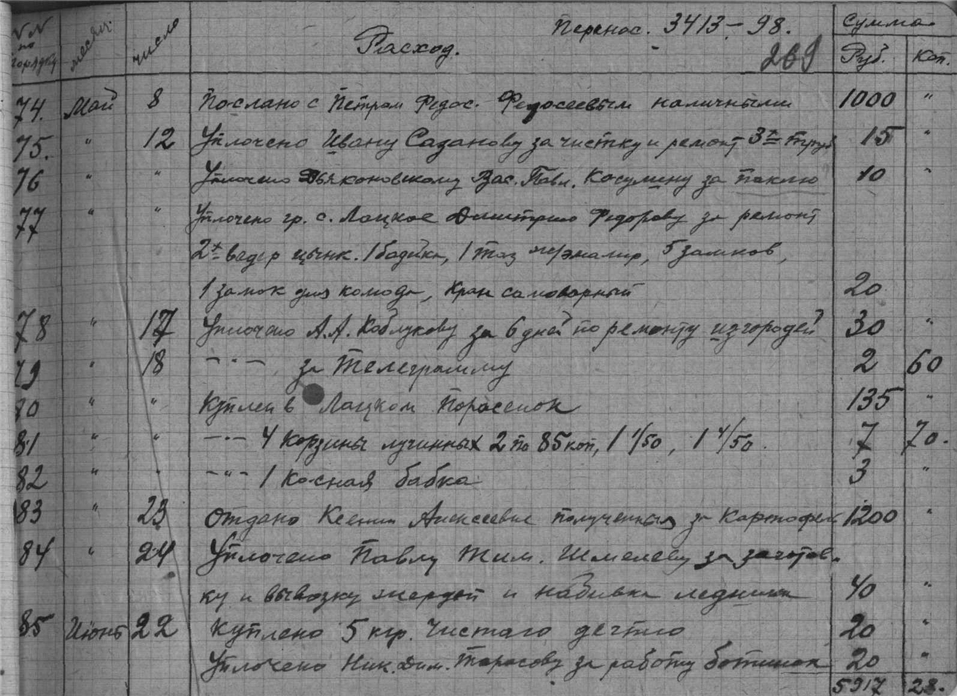 NN по порядку месяц число Расход. Перенос. 3413-98. Сумма
269 Руб. Коп.
74. Май 8 Послано с Петром Федос. Федосеевым наличными 1000 "
75. " 12 Уплочено Ивану Саданову за чистку и ремонт 3х труб 15 "
76 " " Уплочено Дьяконовскому Вас. Павл. за паклю 10 "
77 " " Уплочено гр. с. Лацкое Дмитрию Федорову за ремонт
2х ведер цынк. 1 бадейка, 1 таз 5 замков,
1 замок для комода, Кран самоварный 20
78 " 17 Уплочено А.А. Каблукову за 6 дней по ремонту изгородей 30 "
79 " 18 -"- за Телеграмму 2 60
80 " " Куплен в Лацком Поросенок 135 "
81 " " -"- 4 Корзины лучинных 2 по 85 коп, 1 1/50, 1 4/50. 7 70.
82 " " -"- 1 Косная бабка 3 "
83 " 23 Отдано Ксении Алексеевне полученных за Картофель 1200 "
84 " 24 Уплочено Павлу Тим. Шмелеву за заготов-
ку и вывозку жердей и набивка ледника 40 "
85 Июнь 22 Куплено 5 кгр. Чистаго дегтю 20 "
Уплочено Ник. Дим. Тарасову за работу ботинок 20 "
5917 28.